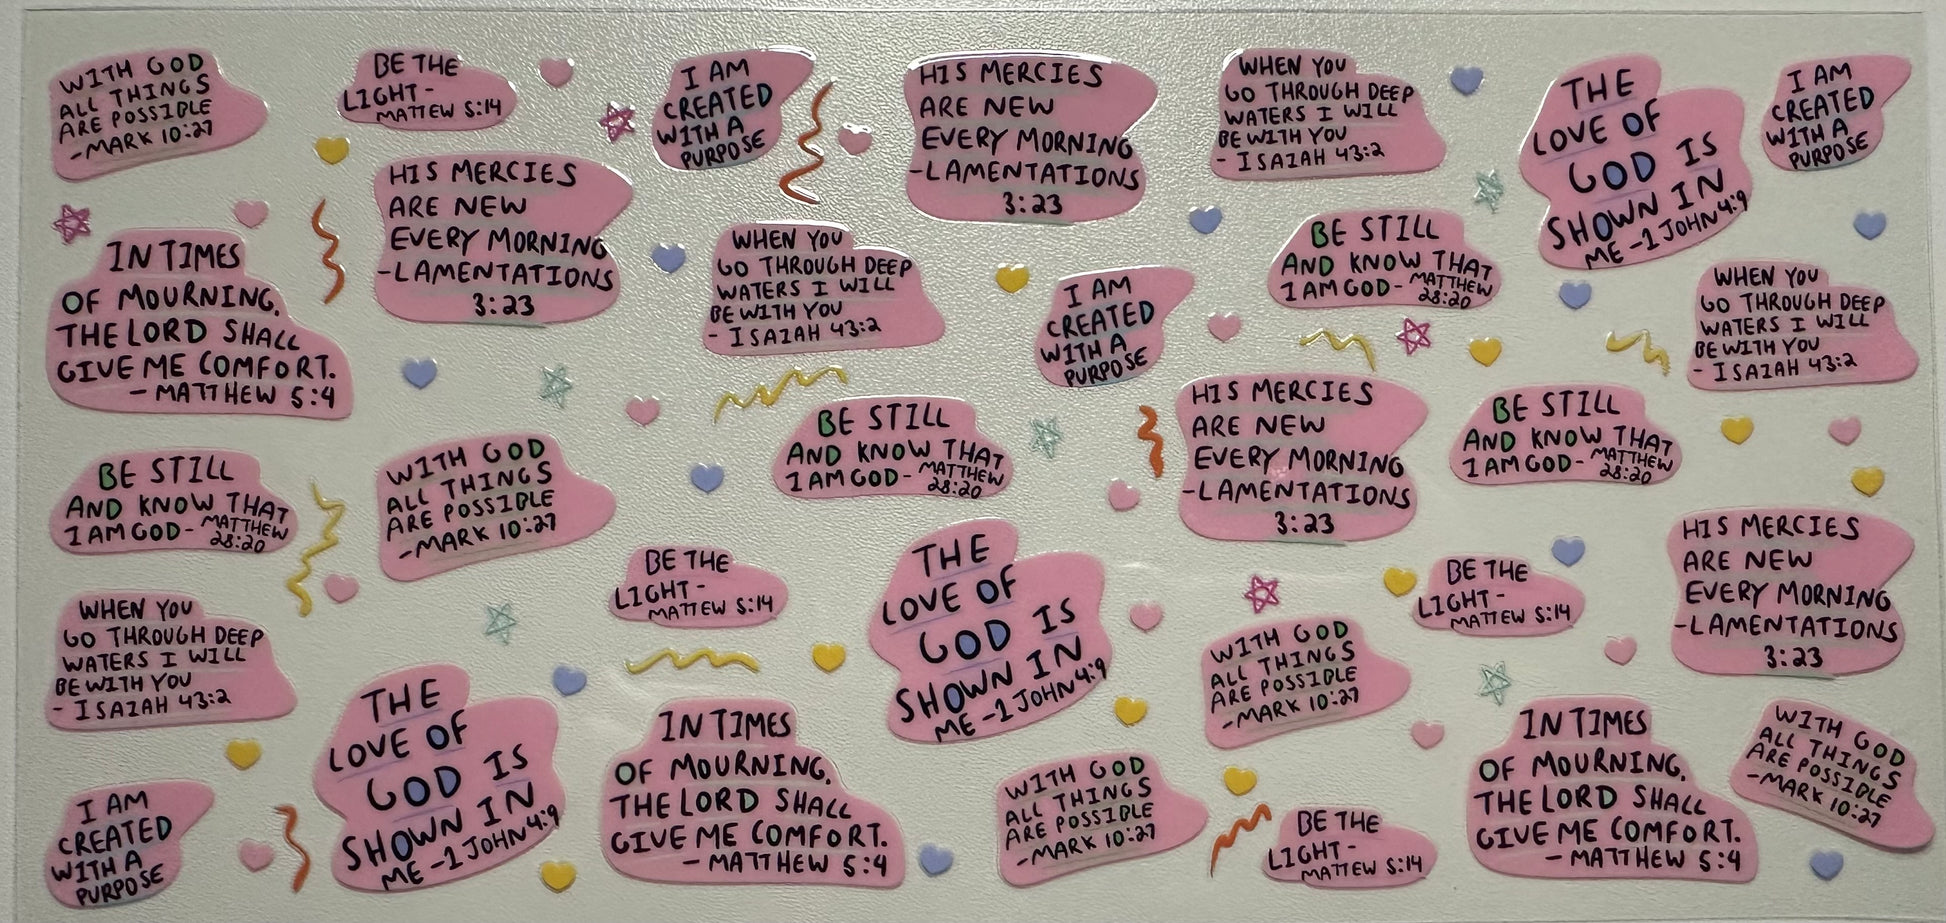 WITH GOD
ALL THINGS
ARE POSSIBLE
-MARK 10:27
BE THE
LIGHT -
MATTEW 5:14
I AM
CREATED
WITH A
PURPOSE
HIS MERCIES
ARE NEW
EVERY MORNING
-LAMENTATIONS
3:23
WHEN YOU
GO THROUGH DEEP
WATERS I WILL
BE WITH YOU
- ISAIAH 43:2
THE
LOVE OF
GOD IS
SHOWN IN
ME -1 JOHN 4:9
I AM
CREATED
WITH A
PURPOSE
HIS MERCIES
ARE NEW
EVERY MORNING
-LAMENTATIONS
3:23
IN TIMES
OF MOURNING,
THE LORD SHALL
GIVE ME COMFORT.
- MATTHEW 5:4
WHEN YOU
GO THROUGH DEEP
WATERS I WILL
BE WITH YOU
- ISAIAH 43:2
I AM
CREATED
WITH A
PURPOSE
BE STILL
AND KNOW THAT
I AM GOD - MATTHEW
28:20
WHEN YOU
GO THROUGH DEEP
WATERS I WILL
BE WITH YOU
- ISAIAH 43:2
BE STILL
AND KNOW THAT
I AM GOD - MATTHEW
28:20
WITH GOD
ALL THINGS
ARE POSSIBLE
-MARK 10:27
BE STILL
AND KNOW THAT
I AM GOD - MATTHEW
28:20
HIS MERCIES
ARE NEW
EVERY MORNING
-LAMENTATIONS
3:23
BE STILL
AND KNOW THAT
I AM GOD - MATTHEW
28:20
WHEN YOU
GO THROUGH DEEP
WATERS I WILL
BE WITH YOU
- ISAIAH 43:2
BE THE
LIGHT -
MATTEW 5:14
THE
LOVE OF
GOD IS
SHOWN IN
ME -1 JOHN 4:9
WITH GOD
ALL THINGS
ARE POSSIBLE
-MARK 10:27
BE THE
LIGHT -
MATTEW 5:14
HIS MERCIES
ARE NEW
EVERY MORNING
-LAMENTATIONS
3:23
I AM
CREATED
WITH A
PURPOSE
THE
LOVE OF
GOD IS
SHOWN IN
ME -1 JOHN 4:9
IN TIMES
OF MOURNING,
THE LORD SHALL
GIVE ME COMFORT.
- MATTHEW 5:4
WITH GOD
ALL THINGS
ARE POSSIBLE
-MARK 10:27
BE THE
LIGHT -
MATTEW 5:14
IN TIMES
OF MOURNING,
THE LORD SHALL
GIVE ME COMFORT.
- MATTHEW 5:4
WITH GOD
ALL THINGS
ARE POSSIBLE
-MARK 10:27